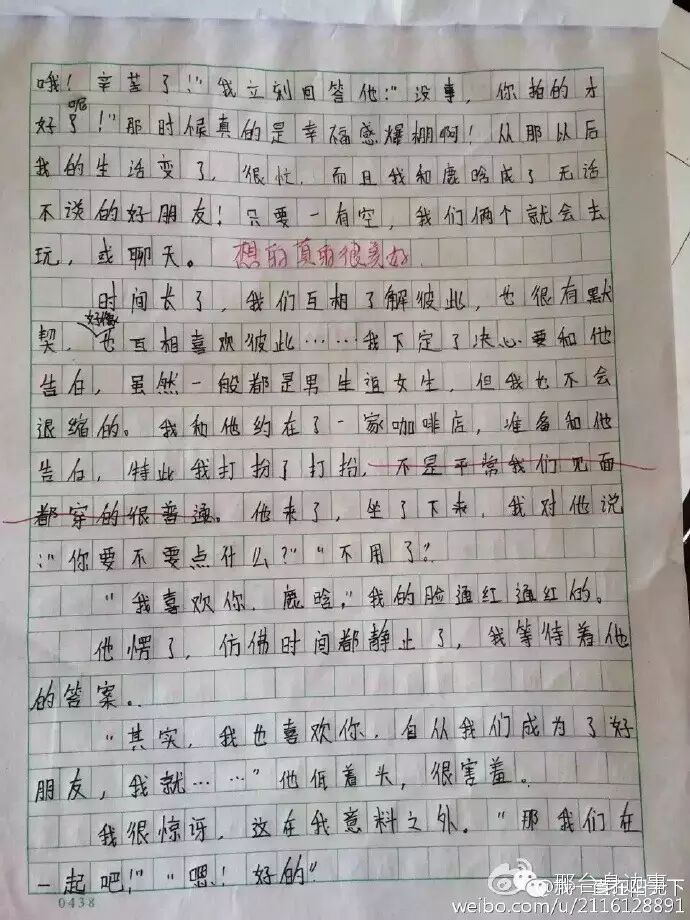 哦！辛苦了！"我立刻回答他："没事，你拍的才
呢
好了！"那时候真的是幸福感爆棚啊！从那以后
我的生活变了，很忙，而且我和鹿晗成了无话
不说的好朋友！只要一有空，我们俩个就会去
玩，或聊天。想的真的很美好
时间长了，我们互相了解彼此，也很有默
好像
契，也互相喜欢彼此……我下定了决心要和他
告白，虽然一般都是男生追女生，但我也不会
退缩的。我和他约在了一家咖啡店，准备和他
告白，特此我打扮了打扮，不是平常我们见面
都穿的很普通。他来了，坐了下来，我对他说
："你要不要点什么？""不用了？
"我喜欢你，鹿晗，"我的脸通红通红的。
他愣了，仿佛时间都静止了，我等待着他
的答案。
"其实，我也喜欢你，自从我们成为了好
朋友，我就……"他低着头，很害羞。
我很惊讶，这在我意料之外。"那我们在
一起吧！""嗯！好的"
0438
邢台身边事
weibo.com/u/2116128891